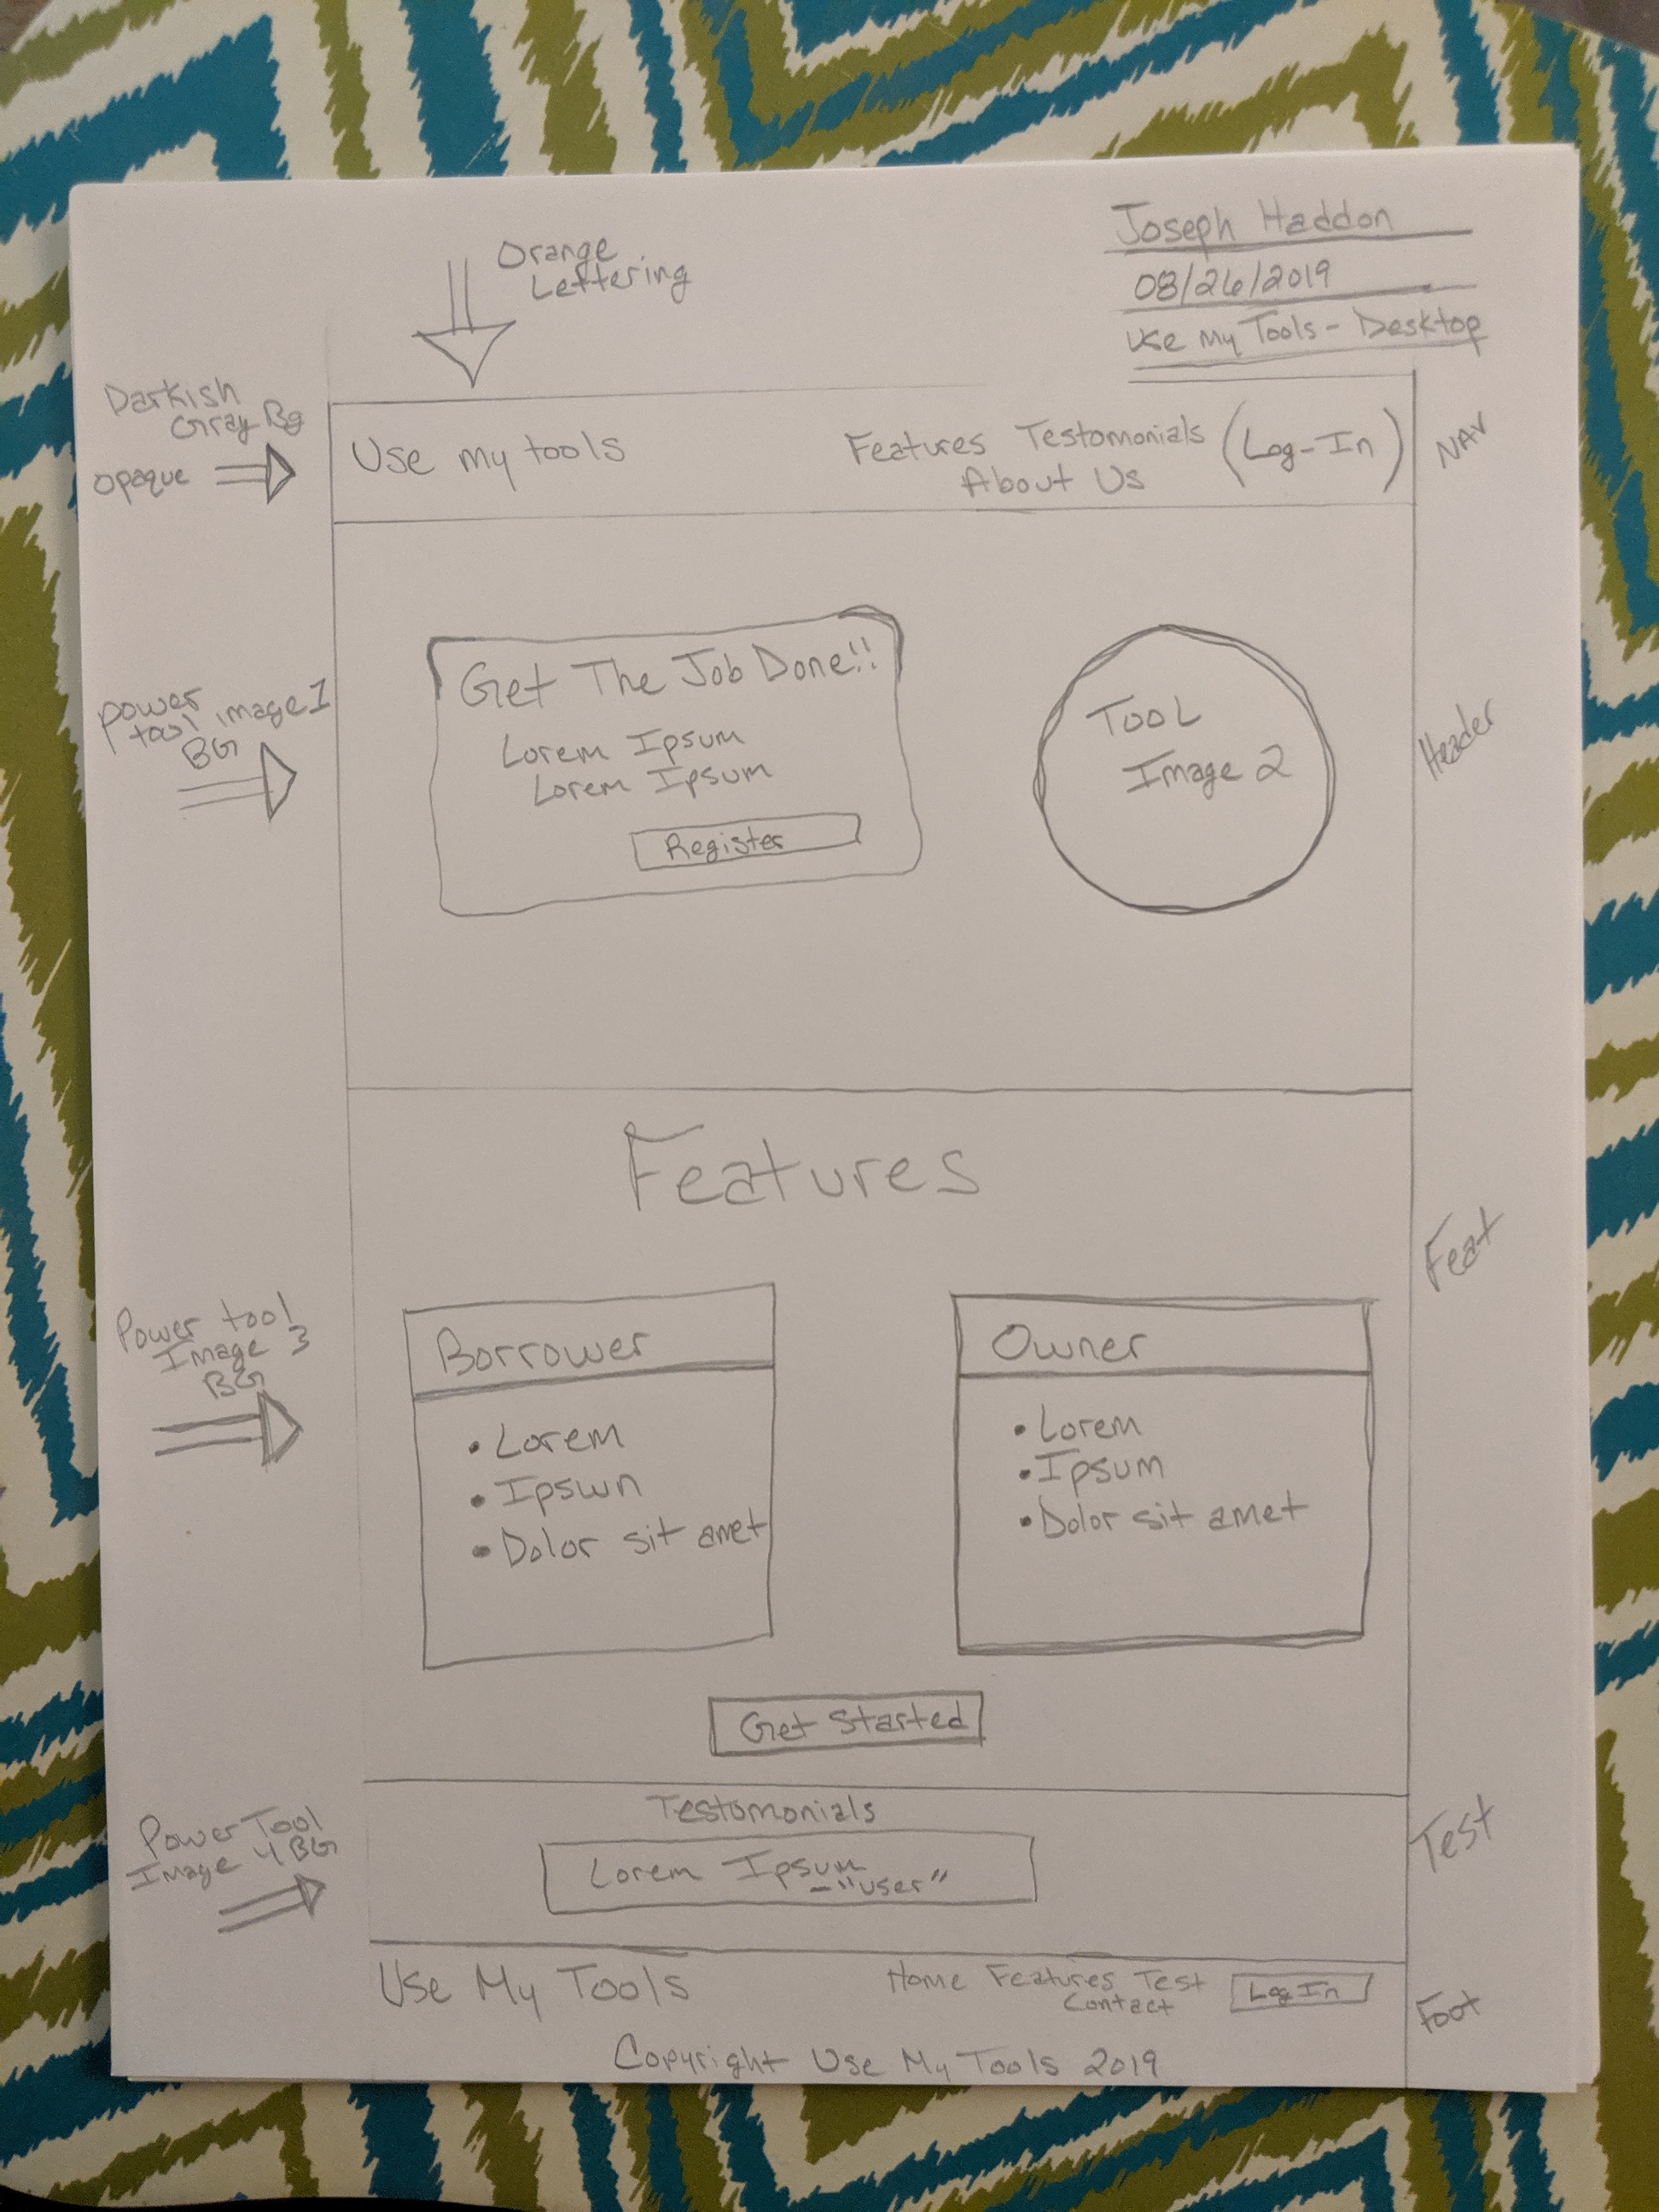 Joseph Haddon
08/26/2019
Use My Tools - Desktop
Orange
Lettering
Darkish
Gray Bg
opaque
Use my tools
Features Testomonials
About Us
(Log-In)
NAV
power
tool image 1
BG
Get The Job Done!!
Lorem Ipsum
Lorem Ipsum
Register
TOOL
Image 2
Header
Features
Feat
Power tool
Image 3
BG
Borrower
• Lorem
• Ipsum
• Dolor sit amet
Owner
• Lorem
• Ipsum
• Dolor sit amet
Get Started
Power Tool
Image 4 BG
Testomonials
Lorem Ipsum
-"user"
Test
Use My Tools
Home Features Test
Contact
Log In
Foot
Copyright Use My Tools 2019